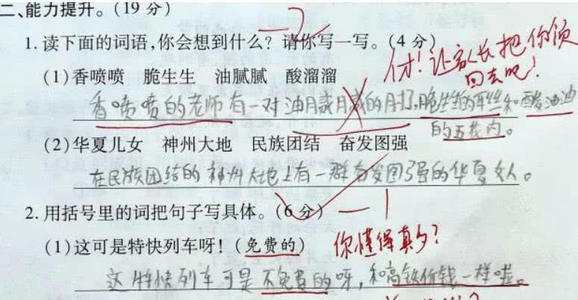 二、能力提升。(19 分)
1. 读下面的词语,你会想到什么? 请你写一写。(4 分)
什! 让家长把你领回去吧!
(1)香喷喷 脆生生 油腻腻 酸溜溜
香喷喷的老师有一对油腻腻的
的五花肉。
(2)华夏儿女 神州大地 民族团结 奋发图强
在民族团结的神州大地上有一群奋发图强的华夏女人。
2. 用括号里的词把句子写具体。(6 分) —1
(1)这可是特快列车呀!(免费的) 你懂得真多?
这特快列车可是不免费的呀,和高铁价钱一样哇。